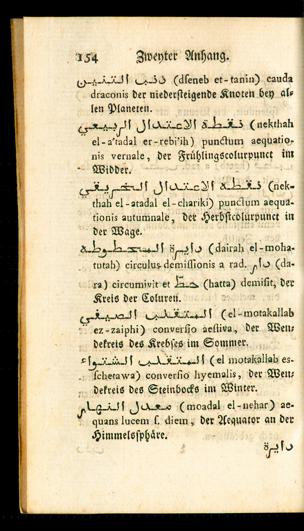 154 Zweyter Anhang.
ذنب التنين (dseneb et-tanin) cauda
draconis der niedersteigende Knoten bey al-
len Planeten.
نقطة الاعتدال الربيعي (nekthah
el-a'tadal er-rebi'ih) punctum aequatio-
nis vernale, der Frühlingscolurpunct im
Widder.
نقطة الاعتدال الخريفي (nek-
thah el-atadal el-chariki) punctum aequa-
tionis autumnale, der Herbstcolurpunct in
der Wage.
دايرة المحطوطه (dairah el-moha-
tutah) circulus demissionis a rad. دار (da-
ra) circumivit et حط (hatta) demisit, der
Kreis der Coluren.
المتقلب الصيفي (el-motakallab
ez-zaiphi) conversio aestiva, der Wen-
dekreis des Krebses im Sommer.
المتقلب الشتواء (el motakallab es-
schetawa) conversio hyemalis, der Wen-
dekreis des Steinbocks im Winter.
معدل النهار (moadal el-nehar) ae-
quans lucem s. diem, der Aequator an der
Himmelssphäre.
دايرة